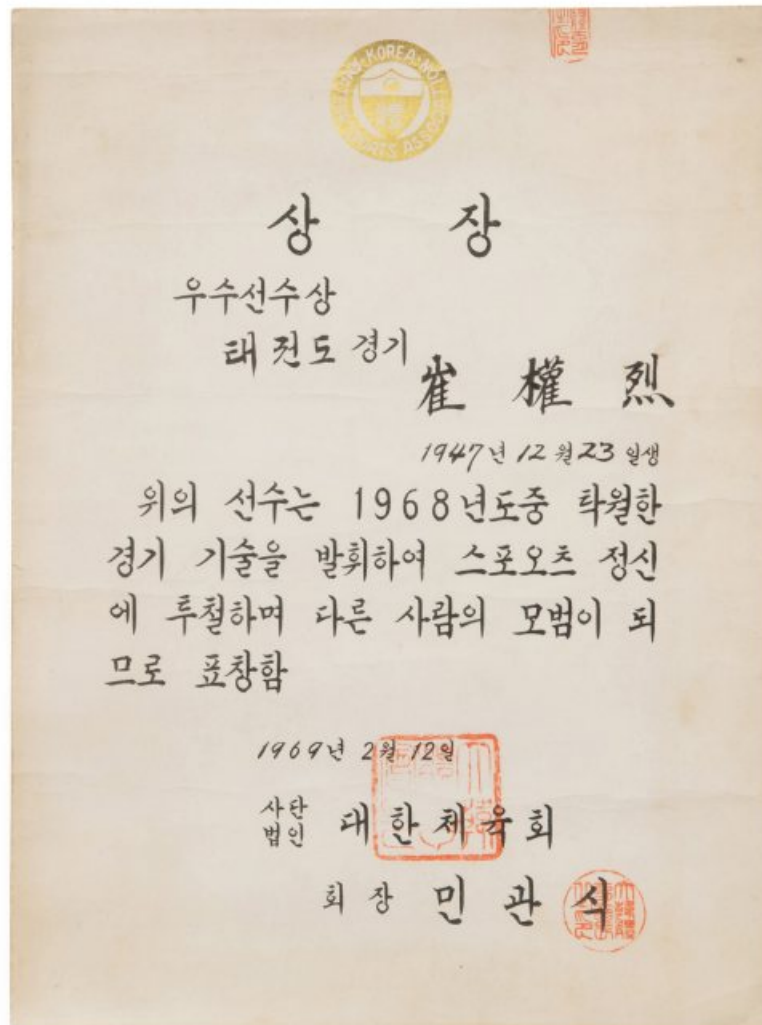 KOREA
SPORTS ASSOC
상 장
우수선수상
태권도 경기
崔 權 烈
1947년 12월 23일생
위의 선수는 1968년도중 탁월한
경기 기술을 발휘하여 스포오츠 정신
에 투철하며 다른 사람의 모범이 되
므로 표창함
1969년 2월 12일
사단
법인 대한체육회
회장 민관식